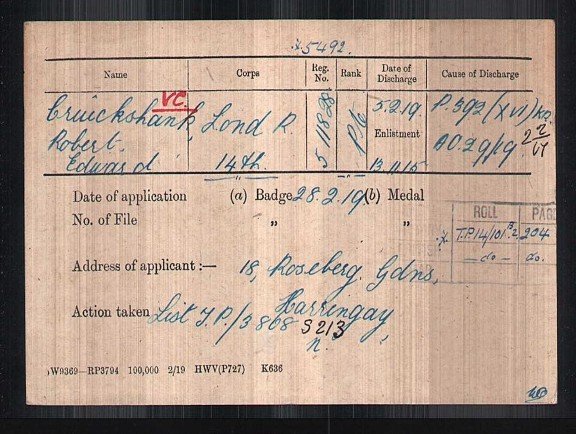 5492.
Name Corps Reg. No. Rank Date of Discharge Cause of Discharge
VC.
Cruickshank, Lond R. 511828 Pte 5.2.19. P. 392 (XVI) KR.
Robert Enlistment AO. 29/19.
Edward 14th. 13.11.15
Date of application (a) Badge 28.2.19 (b) Medal
No. of File „ „
ROLL PAGE
T.P.14/101 B2. 204
— do — do.
Address of applicant :— 18, Roseberg. Gdns,
Harringay,
Action taken List T.P/3868 S213
W9369—RP3794 100,000 2/19 HWV(P727) K636